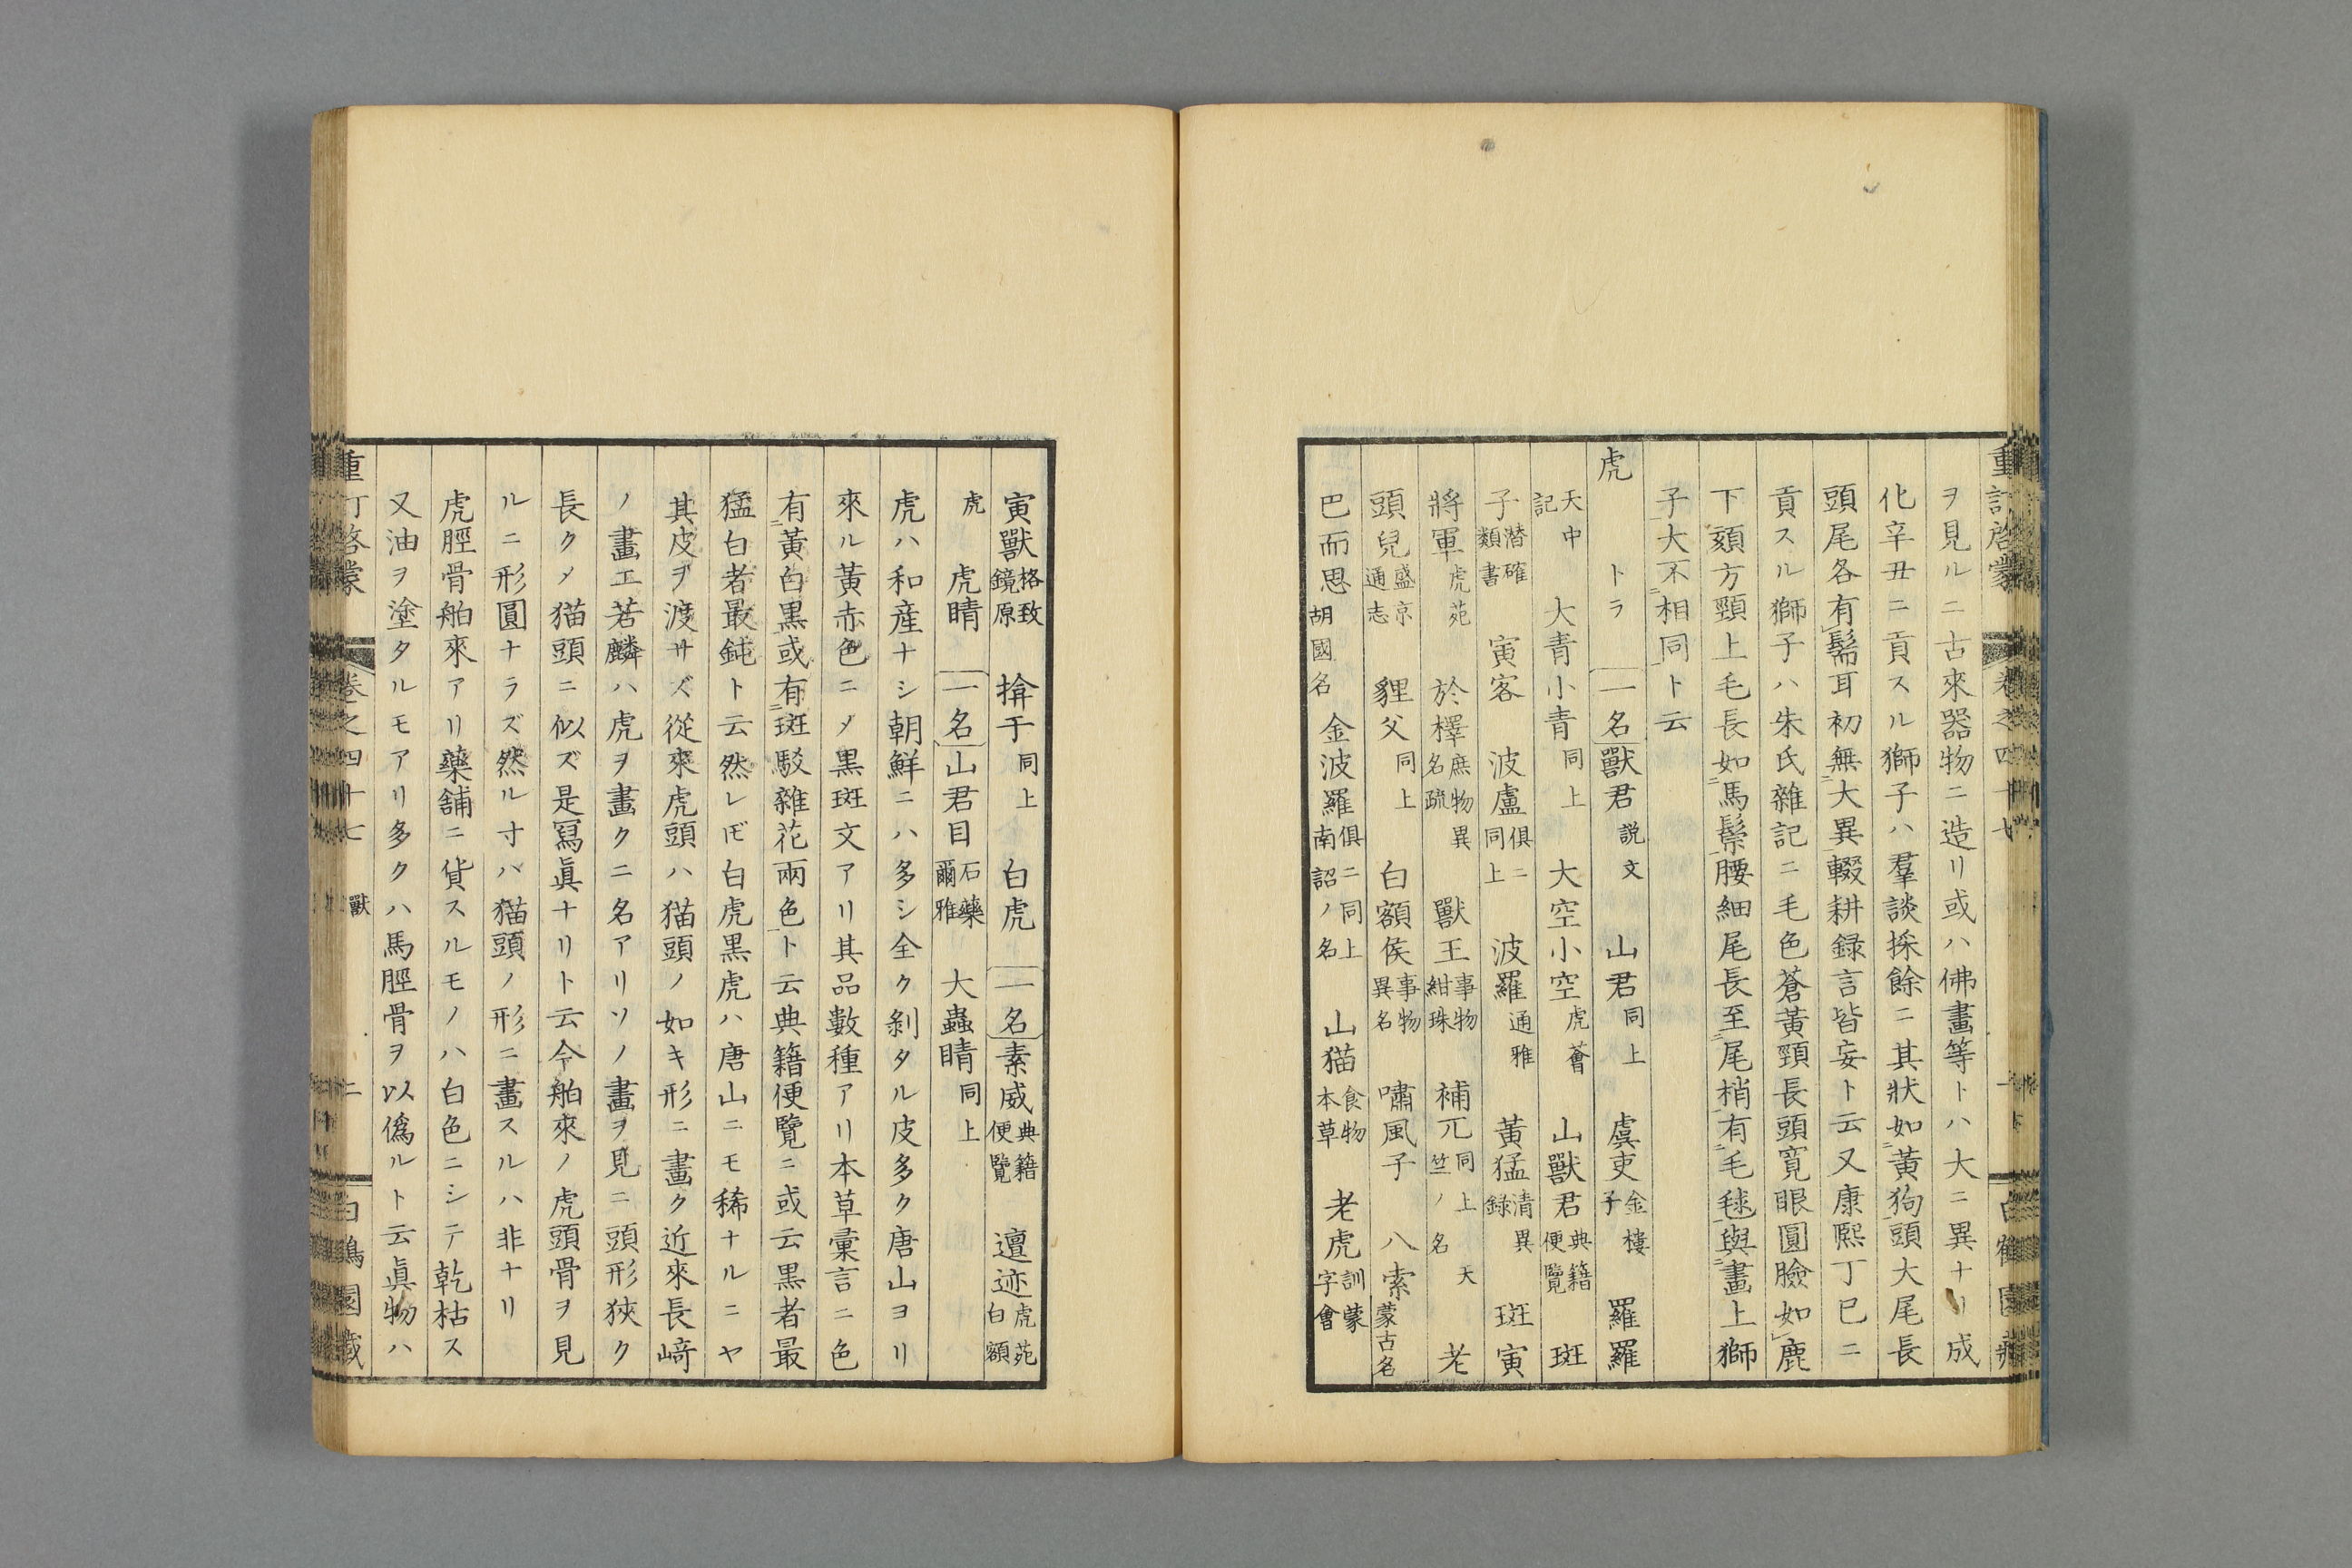 重訂啓蒙 卷之四十七
ヲ見ルニ古來器物ニ造リ或ハ佛畫等トハ大ニ異ナリ成
化辛丑ニ貢スル獅子ハ羣談採餘ニ其狀如黃狗頭大尾長
頭尾各有髵耳初無大異輟耕録言皆妄ト云又康熙丁巳ニ
貢スル獅子ハ朱氏雜記ニ毛色蒼黃頸長頭寬眼圓臉如鹿
下頦方頸上毛長如馬鬃腰細尾長至尾梢有毛毬與畫上獅
子大不相同ト云
虎 トラ 一名獸君 説文 山君 同上 虞吏 金樓子 羅羅
天中記 大青小青 同上 大空小空 虎薈 山獸君 典籍便覽 斑
子 潜確類書 寅客 波盧 俱ニ同上 波羅 通雅 黃猛 清異録 斑寅
將軍 虎苑 於檡 庶物異名疏 獸王 事物紺珠 補兀 同上天竺ノ名 老
頭兒 盛京通志 貍父 同上 白額侯 事物異名 嘯風子 八索 蒙古名
巴而思 胡國名 金波羅 俱ニ同上南詔ノ名 山猫 食物本草 老虎 訓蒙字會
寅獸 格致鏡原 揜于 同上 白虎 一名素威 典籍便覽 邅迹 虎苑 白額
虎 虎睛 一名山君目 石藥爾雅 大蟲睛 同上
虎ハ和産ナシ朝鮮ニハ多シ全ク剝タル皮多ク唐山ヨリ
來ル黃赤色ニメ黒斑文アリ其品數種アリ本草彙言ニ色
有黃白黒或有斑駁雜花兩色ト云典籍便覽ニ或云黒者最
猛白者最鈍ト云然レ𪜈白虎黒虎ハ唐山ニモ稀ナルニヤ
其皮ヲ渡サズ從來虎頭ハ猫頭ノ如キ形ニ畫ク近來長﨑
ノ畫工若麟ハ虎ヲ畫クニ名アリソノ畫ヲ見ニ頭形狹ク
長クメ猫頭ニ似ズ是冩眞ナリト云今舶來ノ虎頭骨ヲ見
ルニ形圓ナラズ然ル寸バ猫頭ノ形ニ畫スルハ非ナリ
虎脛骨舶來アリ藥舗ニ貨スルモノハ白色ニシテ乾枯ス
又油ヲ塗タルモアリ多クハ馬脛骨ヲ以僞ルト云眞物ハ
重訂啓蒙 卷之四十七 獸 二